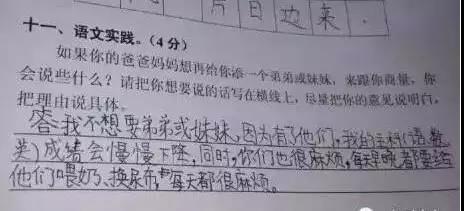 片日边来.
十一、语文实践。(4分)
如果你的爸爸妈妈想再给你添一个弟弟或妹妹,来跟你商量,你
会说些什么?请把你想要说的话写在横线上,尽量把你的意见说明白,
把理由说具体。
答:我不想要弟弟或妹妹,因为有了他们,我的主科(语数
英)成绩会慢慢下降,同时,你们也很麻烦,每天早晚都要给
他们喂奶、换尿布,每天都很麻烦。